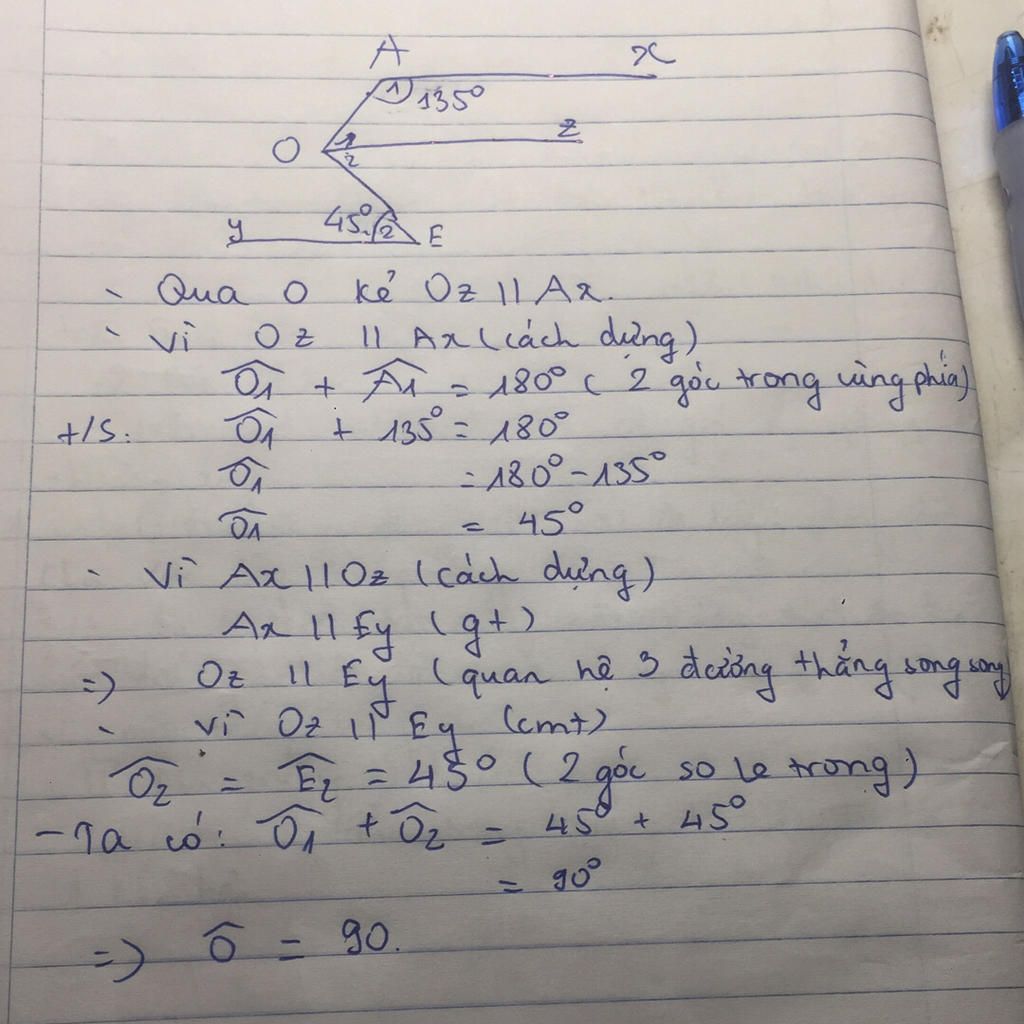 A x
1 135°
O 1 2 z
y 45° 2 E
- Qua O kẻ Oz // Ax.
- Vì Oz // Ax (cách dựng)
Ô1 + Â1 = 180° ( 2 góc trong cùng phía)
t/s: Ô1 + 135° = 180°
Ô1 = 180° - 135°
Ô1 = 45°
- Vì Ax // Oz (cách dựng)
Ax // Ey (gt)
=> Oz // Ey (quan hệ 3 đường thẳng song song
- Vì Oz // Ey (cmt)
Ô2 = Ê2 = 45° ( 2 góc so le trong)
- Ta có: Ô1 + Ô2 = 45° + 45°
= 90°
=> Ô = 90.